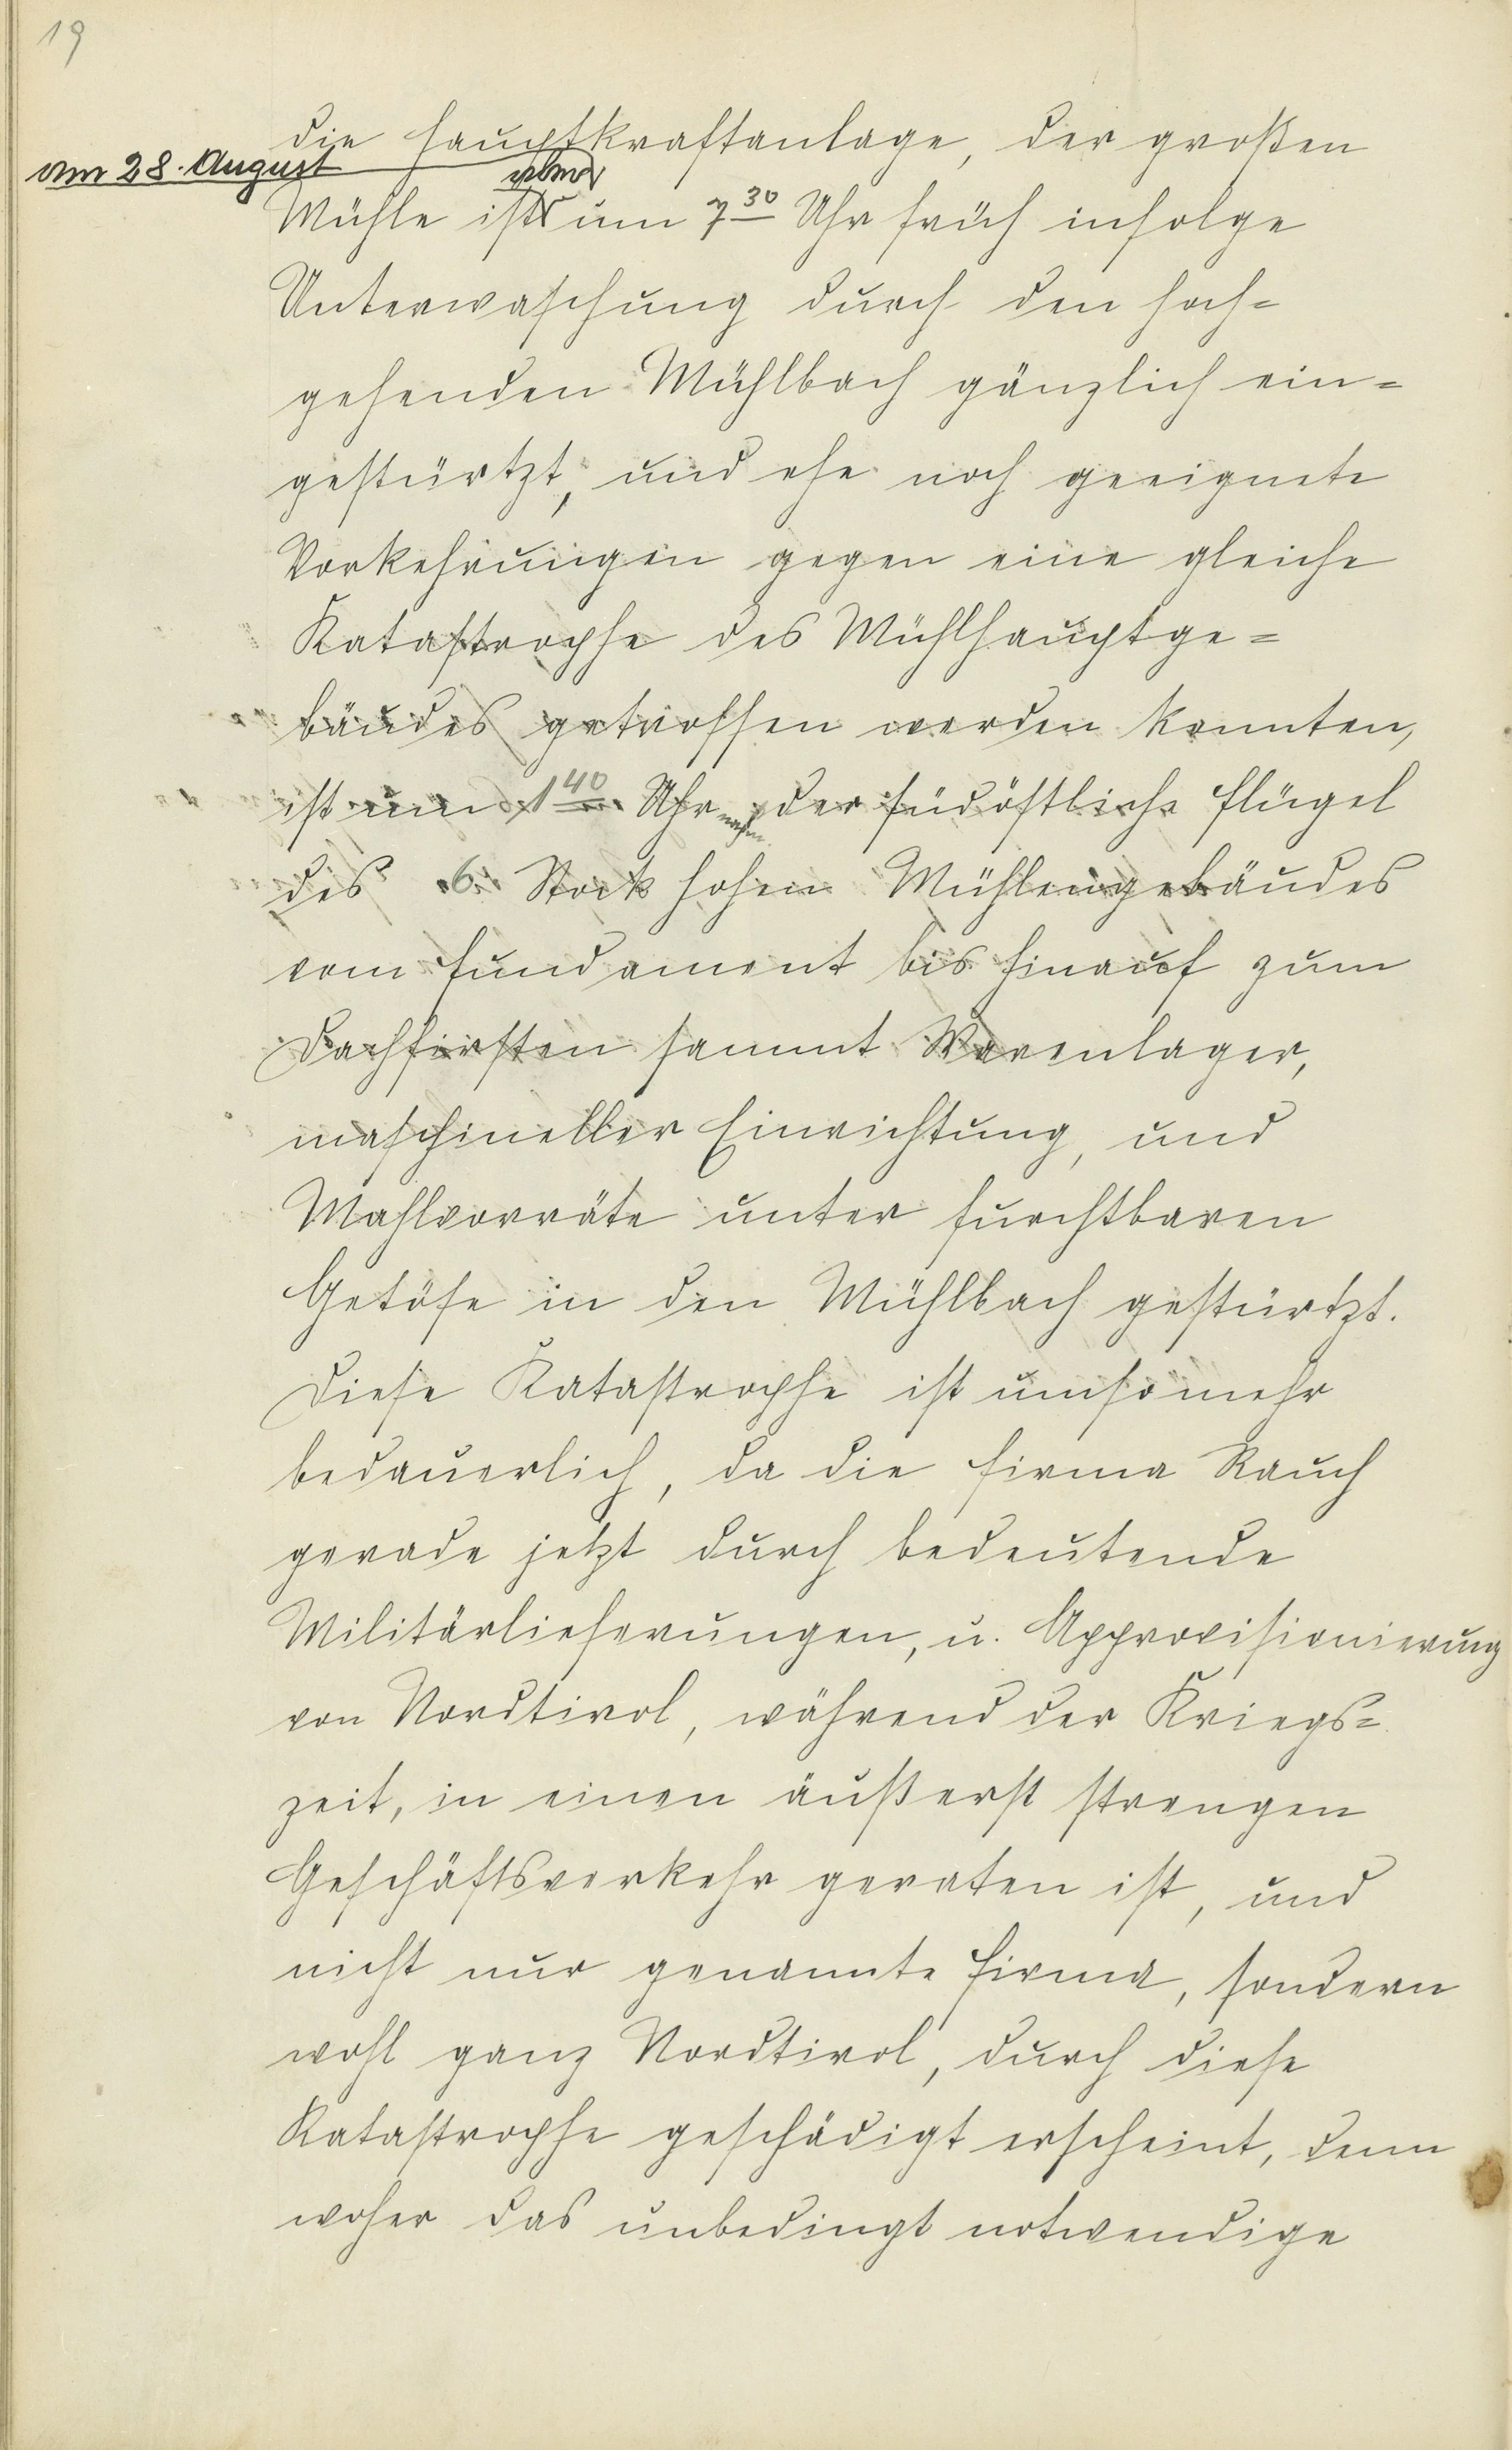 19
die Hauptkraftanlage, der großen
am 28. August
Mühle ist um 7 30 Uhr früh infolge
Unterwaschung durch den hoch-
gehenden Mühlbach gänzlich ein-
gestürtzt, und ehe noch geeignete
Vorkehrungen gegen eine gleiche
Katastrophe des Mühlhauptge-
bäudes getroffen werden konnten,
ist um 1 40 Uhr nachm. der südöstliche Flügel
des 6 Stock hohen Mühlengebäudes
vom Fundament bis hinauf zum
Dachfirsten sammt Warenlager,
maschineller Einrichtung, und
Mahlvorräte unter furchtbaren
Getöse in den Mühlbach gestürtzt.
Diese Katastrophe ist umsomehr
bedauerlich, da die Firma Rauch
gerade jetzt durch bedeutende
Militärlieferungen, u. Approvisionierung
von Nordtirol, während der Kriegs-
zeit, in einen äußerst strengen
Geschäftsverkehr geraten ist, und
nicht nur genannte Firma, sondern
wohl ganz Nordtirol, durch diese
Katastrophe geschädigt erscheint, denn
woher das unbedingt notwendige